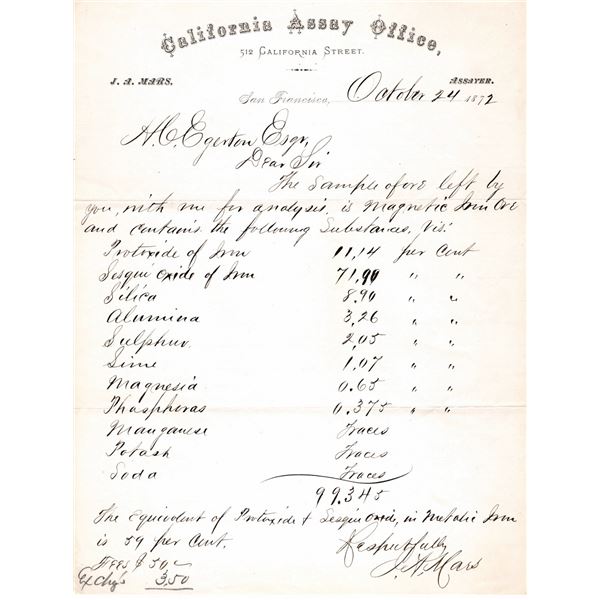 California Assay Office,
512 CALIFORNIA STREET.
J. A. MARS, ASSAYER.
San Francisco, October 24 1872
H. C. Egerton Esqr,
Dear Sir
The Sample of ore left by
you, with me for analysis is Magnetic Iron Ore
and contains the following Substances, Vis:
Protoxide of Iron 11,14 per Cent
Sesqui oxide of Iron 71,90 " "
Silica 8.90 " "
Alumina 3,26 " "
Sulphur 2,05 " "
Lime 1,07 " "
Magnesia 0.65 " "
Phosphoras 0.375 " "
Manganese Traces
Potash Traces
Soda Traces
99.345
The equivalent of Protoxide & Sesqui oxide, in Metalic Iron
is 59 per Cent.
Respectfully
Fees $ 50
J. A. Mars
Ex Chg's 3.50